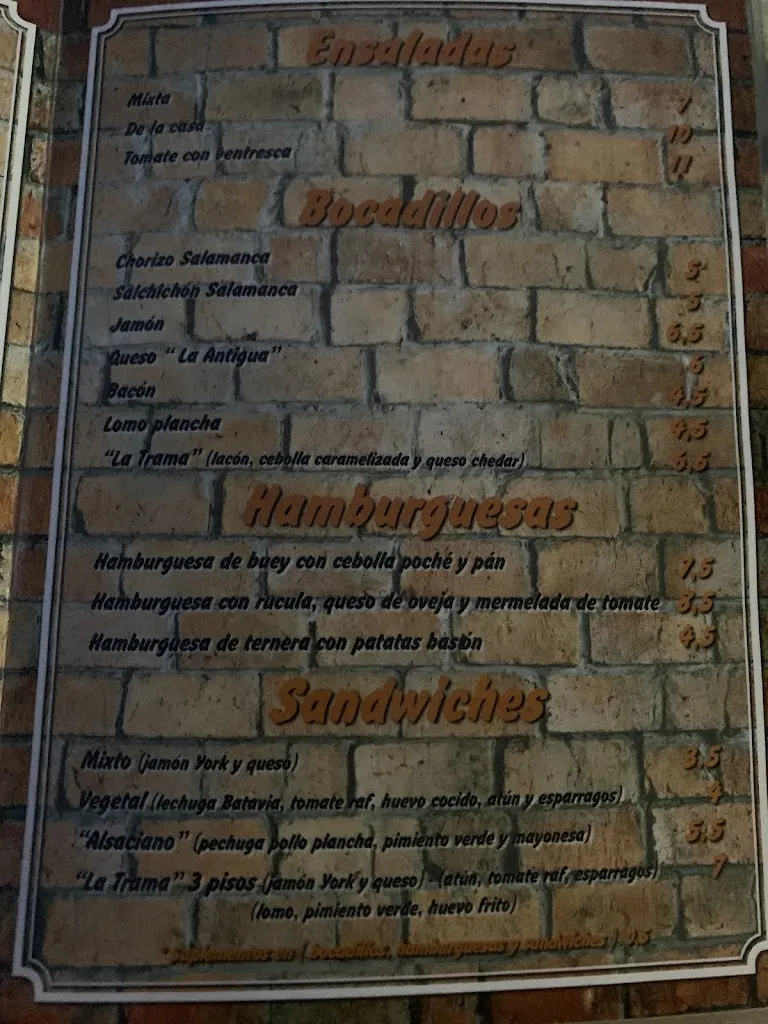 Ensaladas
Mixta 7
De la casa 10
Tomate con ventresca 11
Bocadillos
Chorizo Salamanca 5
Salchichón Salamanca 5
Jamón 6,5
Queso “ La Antigua” 6
Bacón 4,5
Lomo plancha 4,5
“La Trama” (lacón, cebolla caramelizada y queso chedar) 6,5
Hamburguesas
Hamburguesa de buey con cebolla poché y pán 7,5
Hamburguesa con rucula, queso de oveja y mermelada de tomate
Hamburguesa de ternera con patatas bastón 4,5
Sandwiches
Mixto (jamón York y queso) 3,5
Vegetal (lechuga Batavia, tomate raf, huevo cocido, atún y esparragos) 4
“Alsaciano” (pechuga pollo plancha, pimiento verde y mayonesa) 5,5
“La Trama” 3 pisos (jamón York y queso) - (atún, tomate raf, esparragos) 7
(lomo, pimiento verde, huevo frito)
* Suplementos en ( bocadillos, hamburguesas y sandwiches ) 0,5